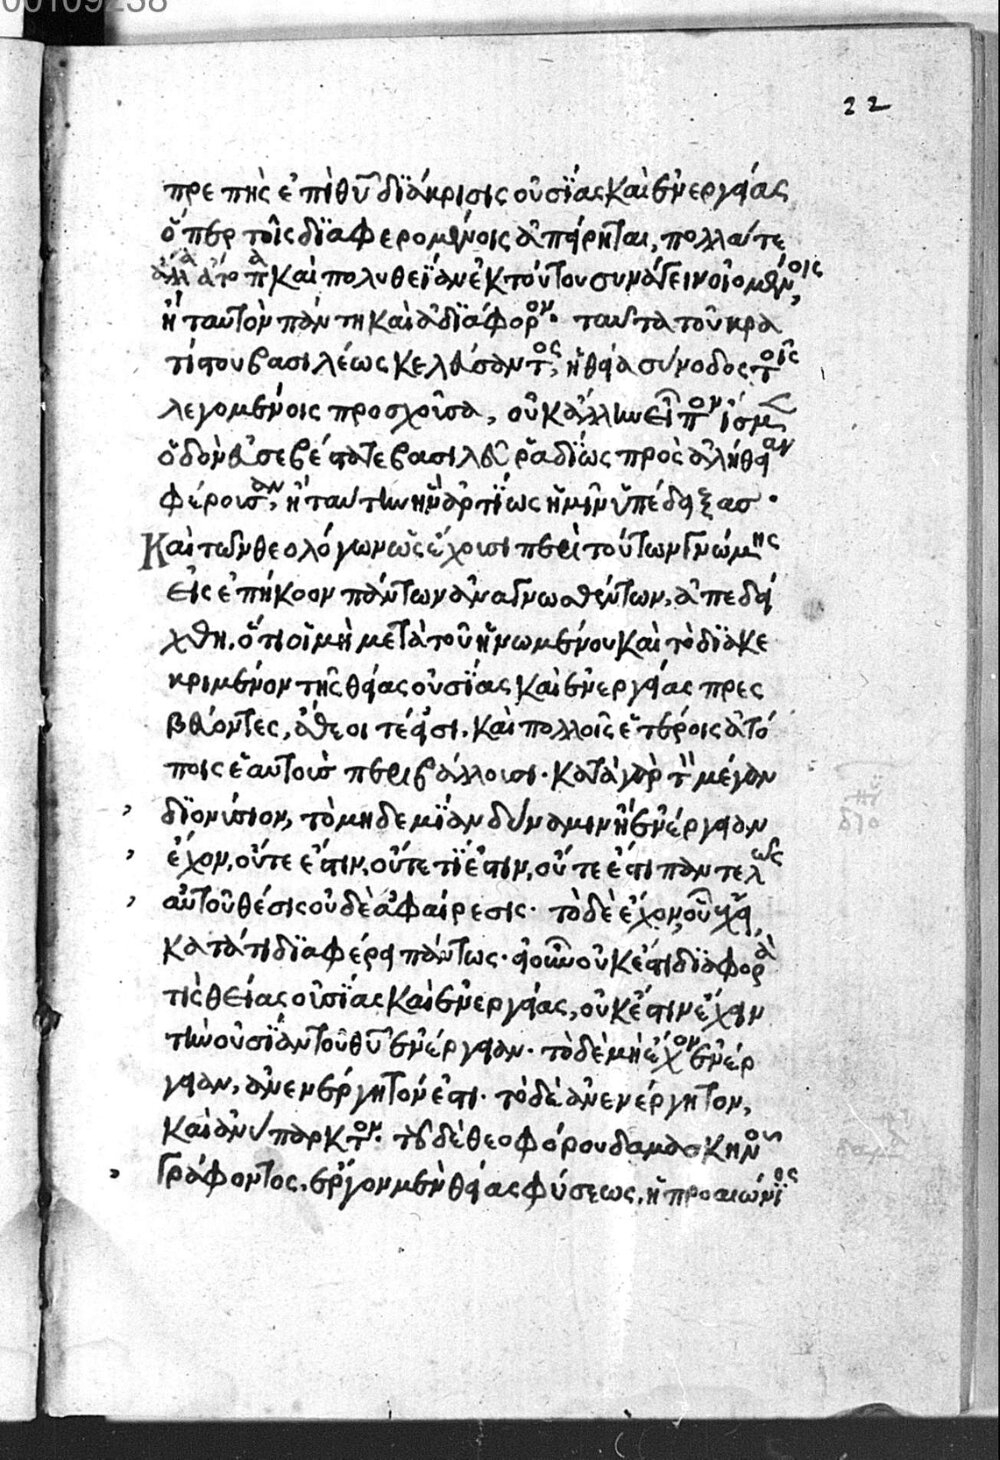 00109238
22
πρεπὴς ἐπὶ θυ διάκρισις οὐσίας καὶ ἐνεργείας
ὅπερ τοῖς διαφερομένοις ἀπείρηται, πολλά τε
ἄλλα ἄτοπα καὶ πολυθεΐαν ἐκ τούτου συνάγειν οἰομένοις,
ἢ ταυτὸν πάντη καὶ ἀδιάφορον. ταῦτα τοῦ κρα
τίστου βασιλέως κελεύσαντος, ἡ θεία σύνοδος τοῖς
λεγομένοις προσχοῦσα, οὐκ ἄλλην εἶπον
ὁδὸν εὐσεβέστατε βασιλεῦ ῥαδίως πρὸς ἀλήθειαν
φέρουσαν, ἢ ταύτην ἣν ἀρτίως ἡμῖν ὑπέδειξας.
Καὶ τῶν θεολόγων ὡς ἔχουσι περὶ τούτων γνώμης
εἰς ἐπήκοον πάντων ἀναγνωσθέντων, ἀπεδεί
χθη, ὅτι οἱ μὴ μετὰ τοῦ ἡνωμένου καὶ τὸ διακε
κριμένον τῆς θείας οὐσίας καὶ ἐνεργείας πρεσ
βεύοντες, ἄθεοι τέ εἰσι, καὶ πολλοῖς ἑτέροις ἀτό
ποις ἑαυτοὺς περιβάλλουσι. κατὰ γὰρ τὸν μέγαν
διονύσιον, τὸ μηδεμίαν δύναμιν ἢ ἐνέργειαν
ἔχον, οὔτε ἔστιν, οὔτε τί ἐστιν, οὔτε ἐστι παντελῶς
αὐτοῦ θέσις οὐδὲ ἀφαίρεσις. τὸ δὲ ἔχον, οὗ ἔχει,
κατά τι διαφέρει πάντως. εἰ οὖν οὐκ ἔστι διαφορὰ
τῆς θείας οὐσίας καὶ ἐνεργείας, οὐκ ἔστιν ἔχειν
τὴν οὐσίαν τοῦ θυ ἐνέργειαν. τὸ δὲ μὴ ἔχον ἐνέρ
γειαν, ἀνενέργητόν ἐστι. τὸ δὲ ἀνενέργητον,
καὶ ἀνύπαρκτον. τοῦ δὲ θεοφόρου δαμασκηνοῦ
γράφοντος, ἔργον μὲν θείας φύσεως, ἡ προαιώνιος